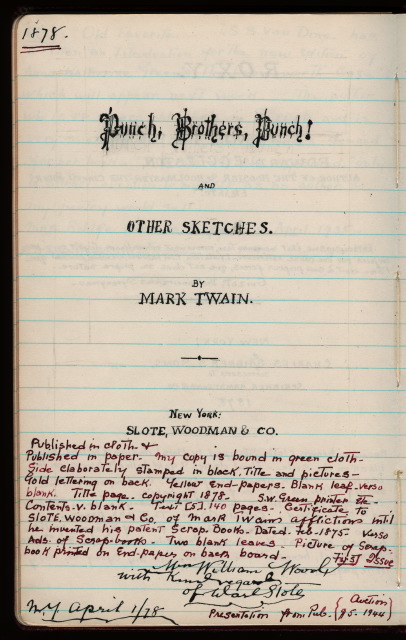 1878.
Punch, Brothers, Punch!
AND
OTHER SKETCHES.
BY
MARK TWAIN.
NEW YORK:
SLOTE, WOODMAN & CO.
Published in cloth - &
Published in paper. My copy is bound in green cloth -
Side elaborately stamped in black. Title and pictures -
Gold lettering on back. Yellow end-papers. Blank leaf - verso
blank. Title page. copyright 1878. S.W. Green printer Etc -
Contents - v. blank. Text [5]. 140 pages. Certificate to
Slote, Woodman & Co. of Mark Twains afflictions until
he invented his patent Scrap Books - Dated - Feb - 1875. Verso
Ads. of Scrap-books. Two blank leaves. Picture of Scrap-
book printed on End-papers on back board -
1st Issue
Mrs William Woods
with Kind regards
of Danl Slote
N.Y. April 1/78
Presentation from Pub. {Auction
$5. - 1944}